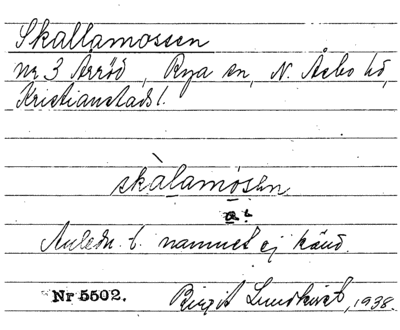 Skallamossen
nr 3 Arröd, Rya sn, N. Åsbo hd,
Kristianstads l.
skàlamosen
Anledn. t. namnet ej känd.
Nr 5502. Birgit Lundkvist, 1938.